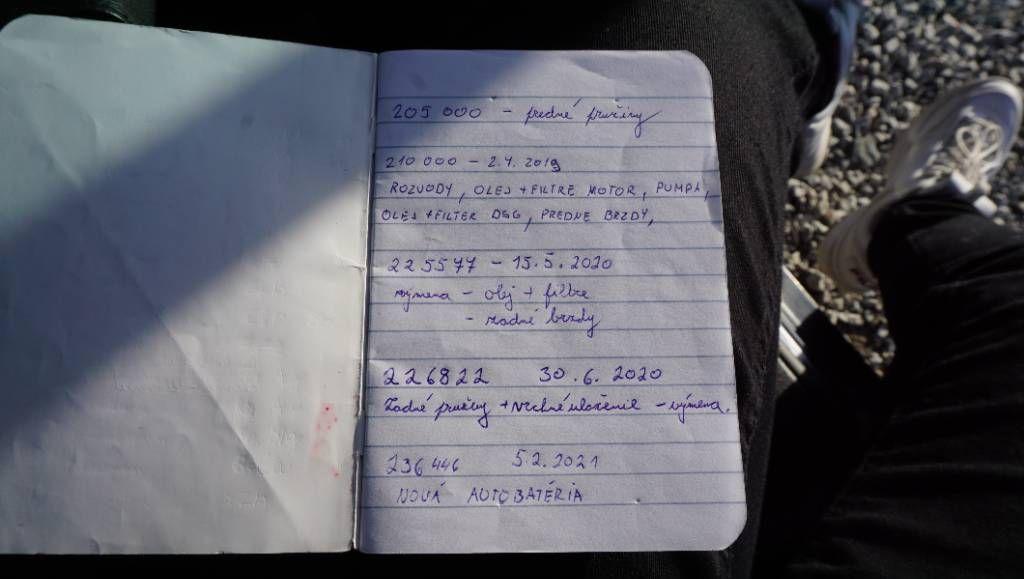 205 000 - predné pružiny
210 000 - 2.4.2019
ROZVODY, OLEJ + FILTRE MOTOR, PUMPA,
OLEJ + FILTER DSG, PREDNE BRZDY,
225577 - 15.5.2020
výmena - olej + filtre
- zadné brzdy
226822 30.6.2020
Zadné pružiny + vrchné uloženie - výmena.
236446 5.2.2021
NOVÁ AUTOBATÉRIA